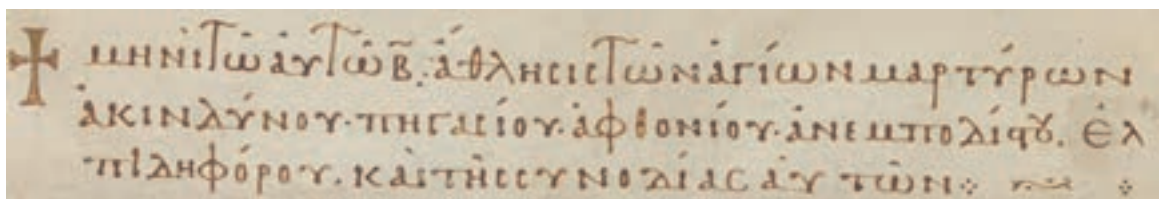 ✝ μηνὶ τῶ ἀυτῶ β̄. ἄθλησις τῶν ἁγίων μαρτύρων
ἀκινδύνου· πηγασίου· ἀφθονίου· ἀνεμποδίϛου. Ἐλ
πιδηφόρου. καὶ τῆς συνοδίας ἀυτῶν⁘ ⁘